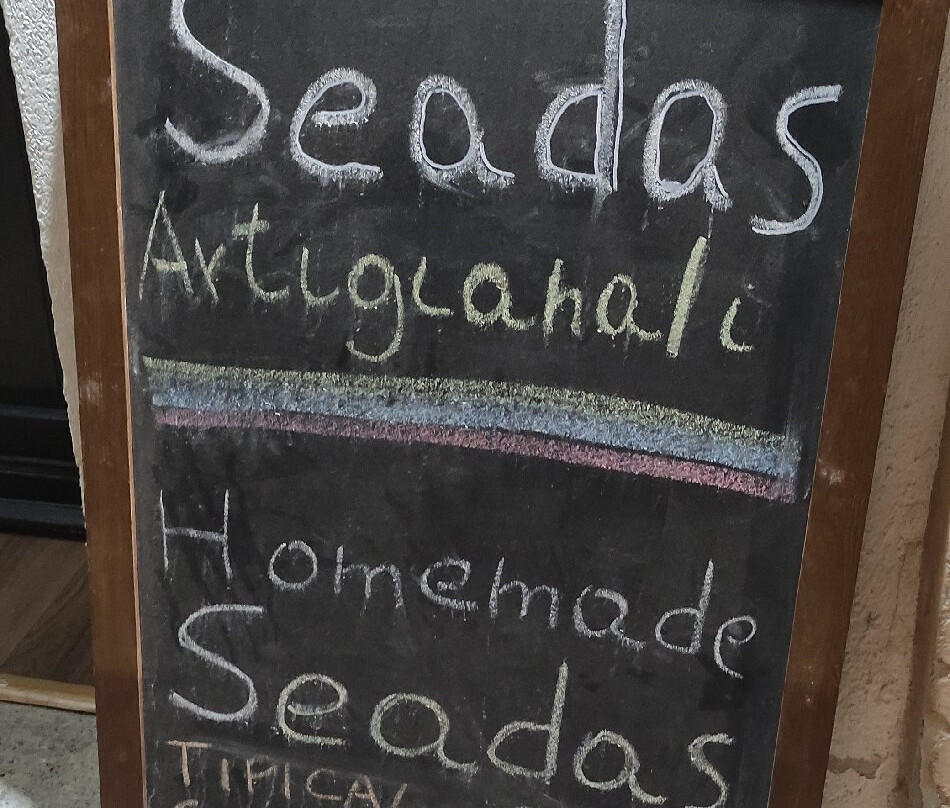 Seadas
Artigianali
Homemade
Seadas
TIPICAL